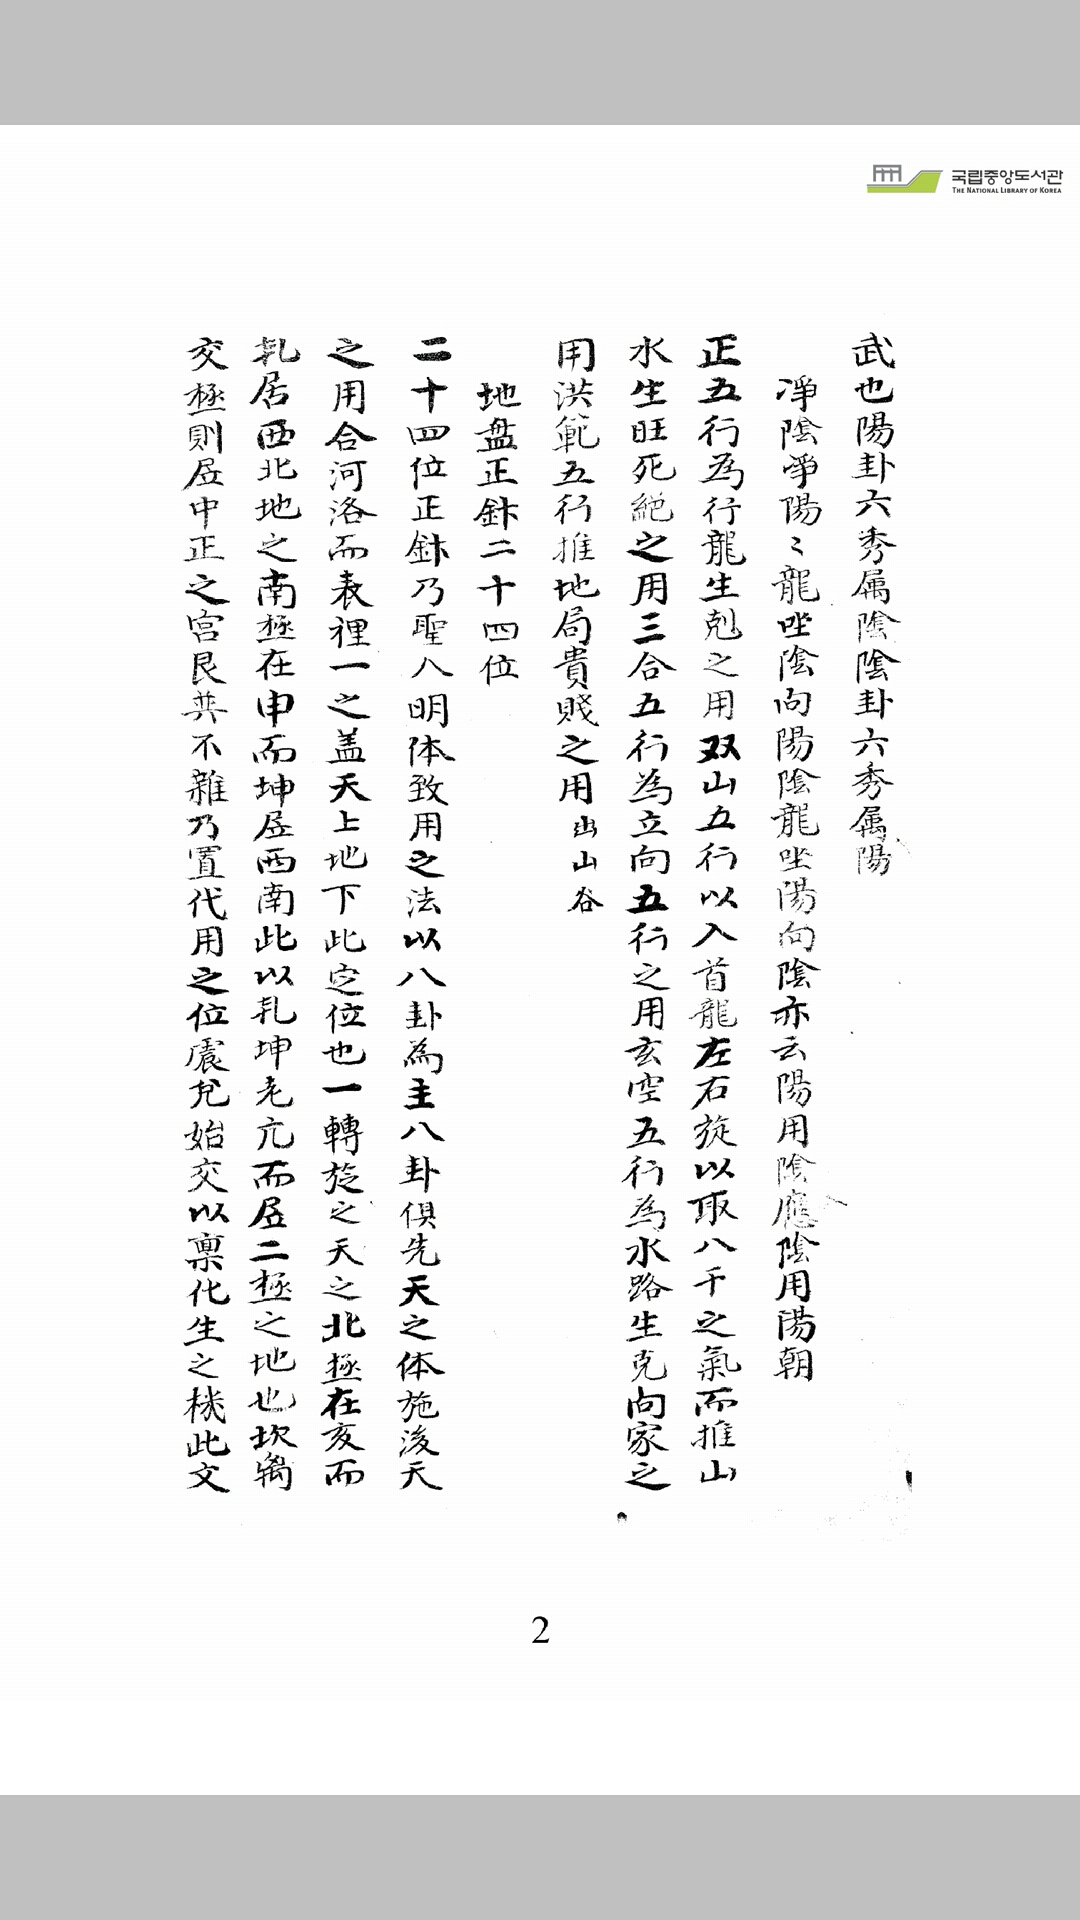 국립중앙도서관
THE NATIONAL LIBRARY OF KOREA
武也陽卦六秀属陰陰卦六秀属陽
淨陰淨陽〻龍坐陰向陽陰龍坐陽向陰亦云陽用陰應陰用陽朝
正五行為行龍生剋之用双山五行以入首龍左右旋以取八干之氣而推山
水生旺死絕之用三合五行為立向五行之用玄空五行為水路生克向家之
用洪範五行推地局貴賤之用出山谷
地盘正針二十四位
二十四位正針乃聖人明体致用之法以八卦為主八卦俱先天之体施後天
之用合河洛而表裡一之盖天上地下此定位也一轉旋之天之北極在亥而
乹居西北地之南極在申而坤居西南此以乹坤老亢而居二極之地也坎离
交極則居中正之宮艮巽不雜乃置代用之位震兌始交以稟化生之機此文
2